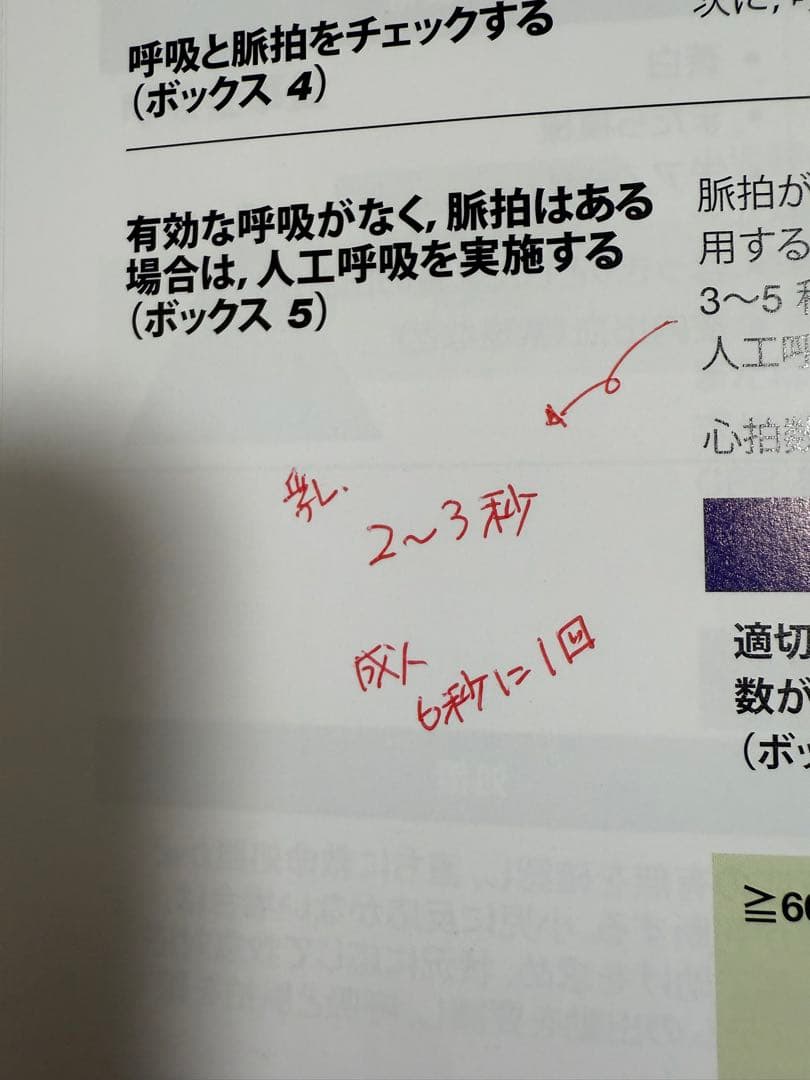 呼吸と脈拍をチェックする
（ボックス 4）
次に，
有効な呼吸がなく，脈拍はある
場合は，人工呼吸を実施する
（ボックス 5）
脈拍が
用する
3～5 秒
人工呼
心拍数
2～3秒
成人
6秒に1回
適切
数が
（ボッ
≧60